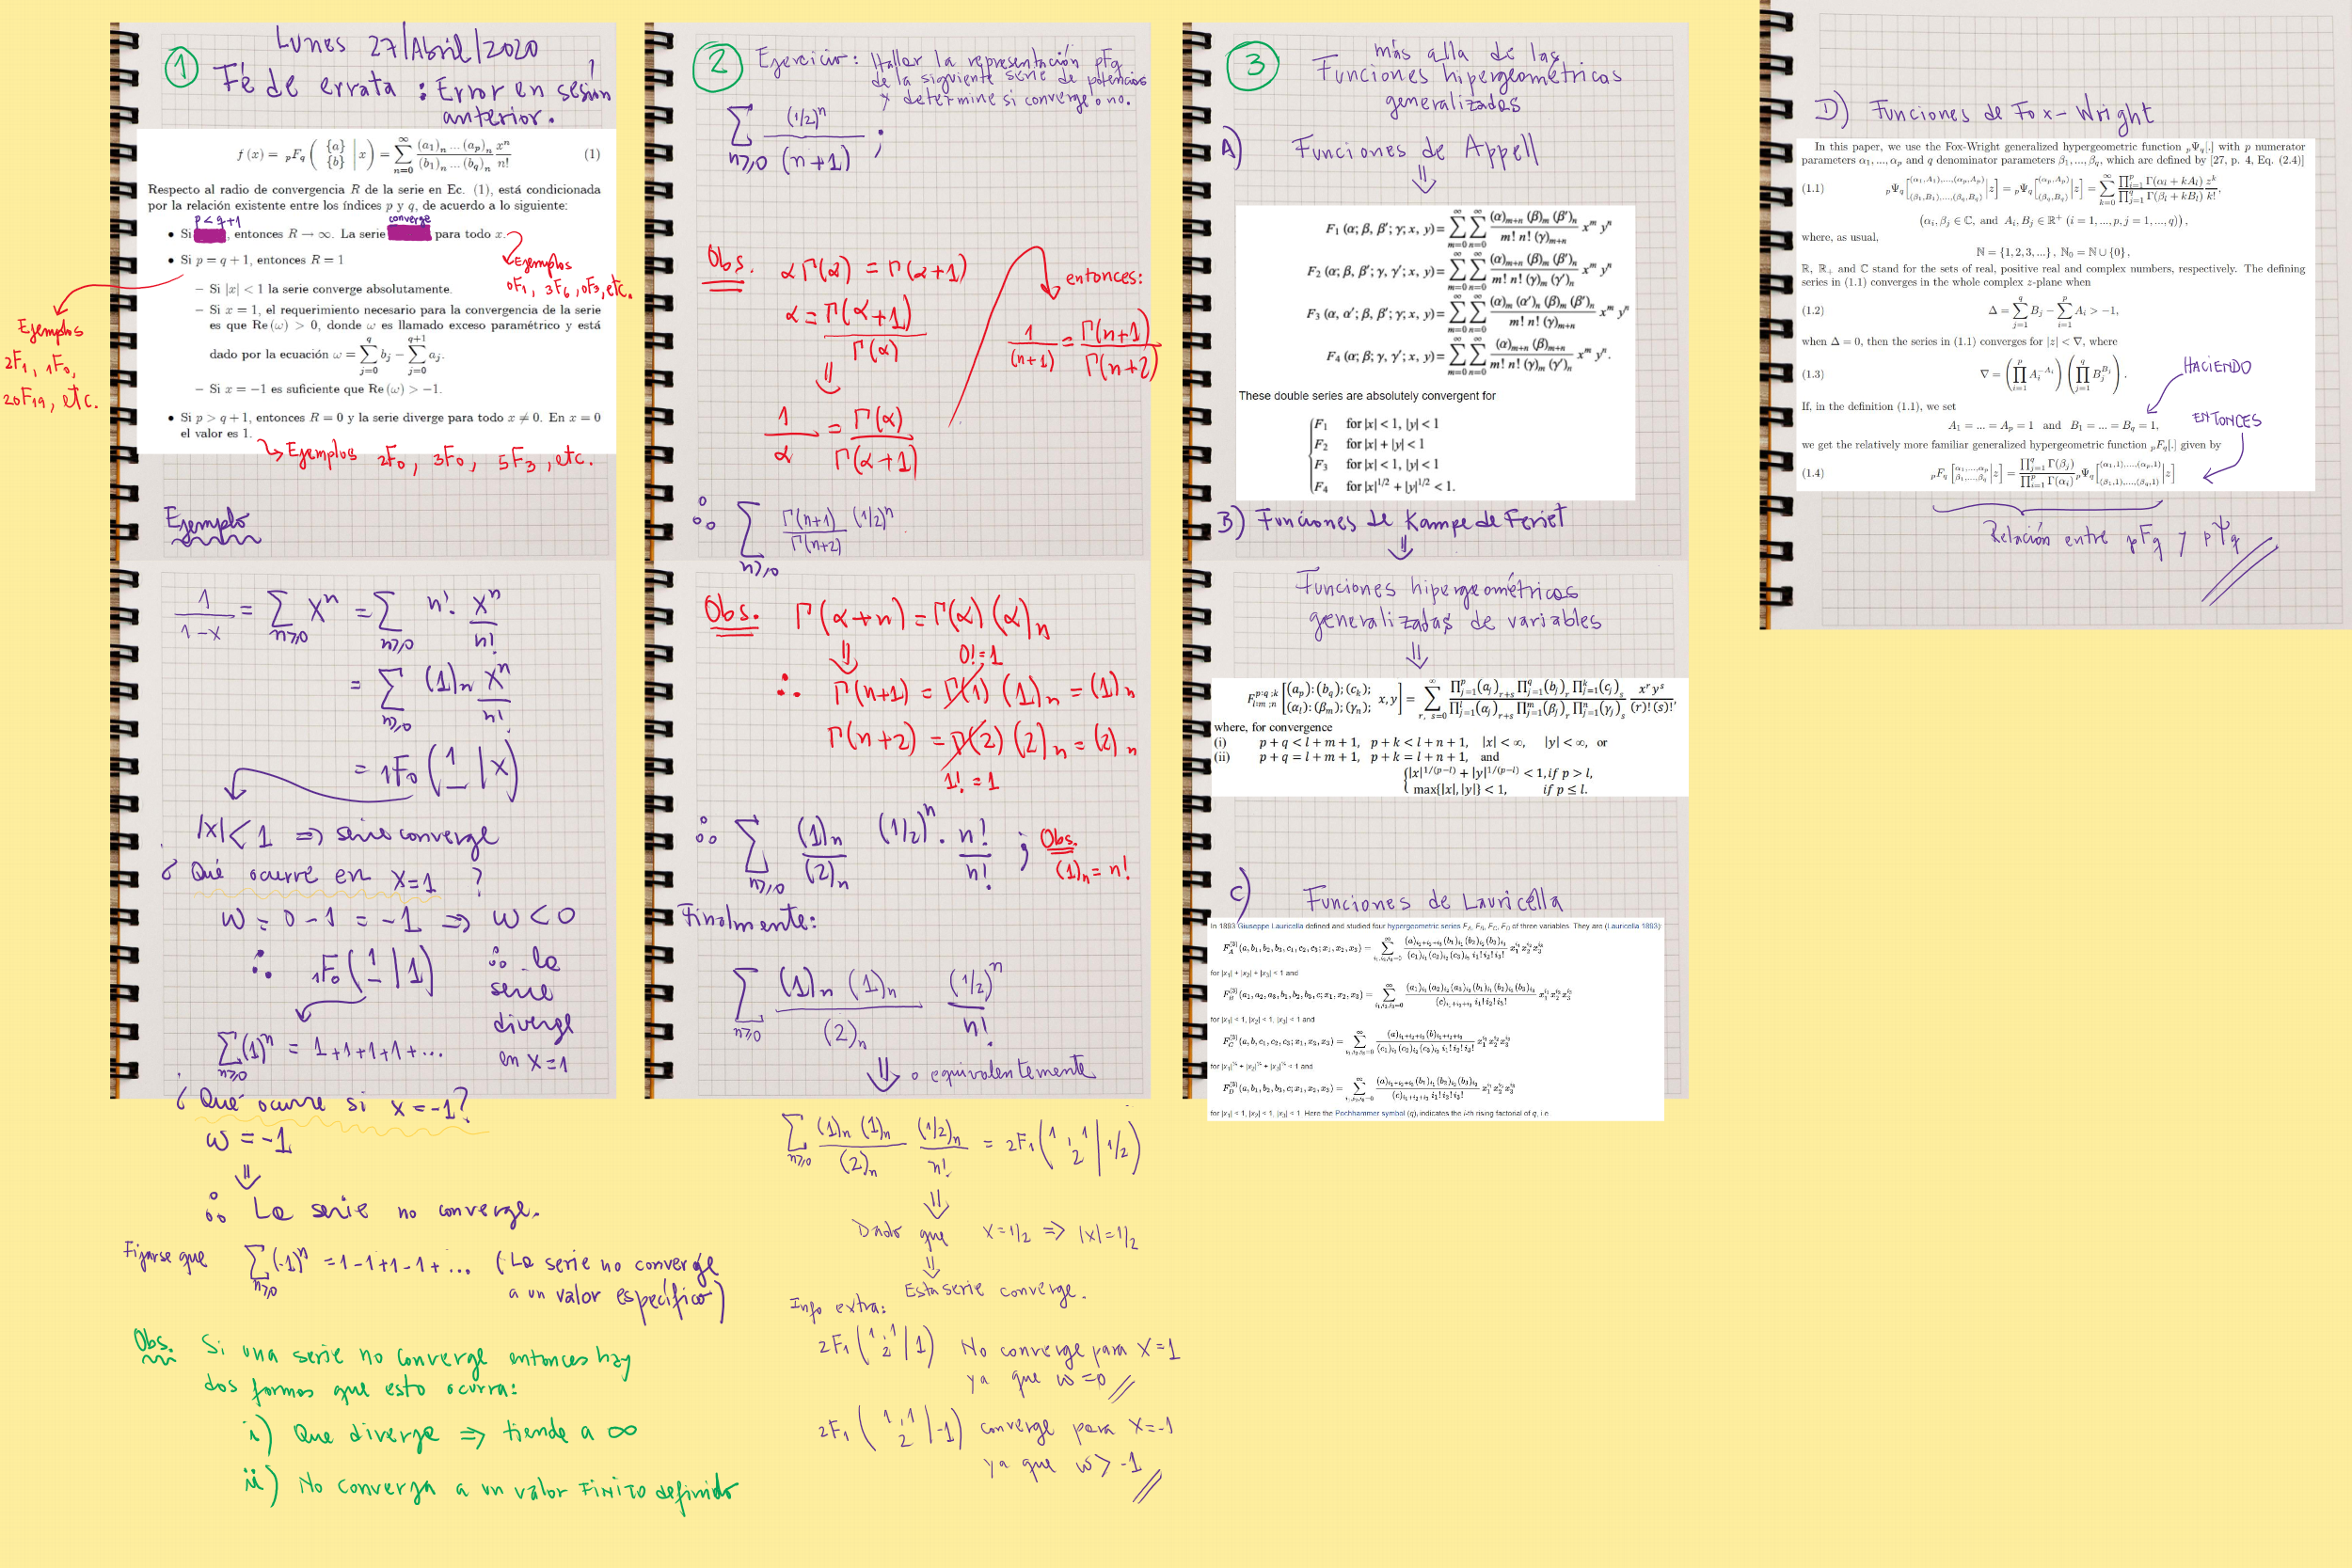 1
Lunes 27/Abril/2020
Fé de errata : Error en sesión
anterior.
f (x) = pFq ( {a} {b} | x ) = ∑_{n=0}^{∞} (a₁)ₙ … (aₚ)ₙ / (b₁)ₙ … (b_q)ₙ xⁿ/n! (1)
Respecto al radio de convergencia R de la serie en Ec. (1), está condicionada
por la relación existente entre los índices p y q, de acuerdo a lo siguiente:
p < q+1 converge
• Si , entonces R → ∞. La serie para todo x.
Ejemplos
0F1, 3F6, 0F3, etc.
• Si p = q + 1, entonces R = 1
– Si |x| < 1 la serie converge absolutamente.
– Si x = 1, el requerimiento necesario para la convergencia de la serie
es que Re (ω) > 0, donde ω es llamado exceso paramétrico y está
dado por la ecuación ω = ∑_{j=0}^{q} bⱼ − ∑_{j=0}^{q+1} aⱼ.
– Si x = −1 es suficiente que Re (ω) > −1.
Ejemplos
2F1, 1F0,
20F19, etc.
• Si p > q + 1, entonces R = 0 y la serie diverge para todo x ≠ 0. En x = 0
el valor es 1.
Ejemplos 2F0, 3F0, 5F3, etc.
Ejemplo
1/(1-x) = ∑_{n≥0} xⁿ = ∑_{n≥0} n! · xⁿ/n!
= ∑_{n≥0} (1)ₙ xⁿ/n!
= 1F0 ( 1 — | x )
|x| < 1 ⇒ serie converge
¿ Qué ocurre en x=1 ?
ω = 0 - 1 = -1 ⇒ ω < 0
∴ 1F0 ( 1 — | 1 ) ∴ la
serie
diverge
en x=1
∑_{n≥0} (1)ⁿ = 1+1+1+1+...
¿ Qué ocurre si x = -1?
ω = -1
⇓
∴ La serie no converge.
Fijarse que ∑_{n≥0} (-1)ⁿ = 1-1+1-1+... (La serie no converge
a un valor específico)
Obs. Si una serie no converge entonces hay
dos formas que esto ocurra:
i) Que diverge ⇒ tiende a ∞
ii) No converga a un valor FINITO definido
2
Ejercicio: Hallar la representación pFq
de la siguiente serie de potencias
y determine si converge o no.
∑_{n≥0} (1/2)ⁿ / (n+1) ;
Obs. α Γ(α) = Γ(α+1)
α = Γ(α+1) / Γ(α)
⇓
1/α = Γ(α) / Γ(α+1)
entonces:
1/(n+1) = Γ(n+1) / Γ(n+2)
∴ ∑_{n≥0} Γ(n+1)/Γ(n+2) (1/2)ⁿ
Obs. Γ(α+n) = Γ(α) (α)ₙ
⇓ 0! = 1
∴ Γ(n+1) = Γ(1) (1)ₙ = (1)ₙ
Γ(n+2) = Γ(2) (2)ₙ = (2)ₙ
1! = 1
∴ ∑_{n≥0} (1)ₙ/(2)ₙ (1/2)ⁿ · n!/n! ; Obs.
(1)ₙ = n!
Finalmente:
∑_{n≥0} (1)ₙ (1)ₙ / (2)ₙ (1/2)ⁿ / n!
⇓ o equivalentemente
∑_{n≥0} (1)ₙ (1)ₙ / (2)ₙ (1/2)ₙ / n! = 2F1 ( 1, 1 2 | 1/2 )
⇓
Dado que x = 1/2 ⇒ |x| = 1/2
⇓
Esta serie converge.
Info extra:
2F1 ( 1, 1 2 | 1 ) No converge para x = 1
ya que ω = 0 //
2F1 ( 1, 1 2 | -1 ) converge para x = -1
ya que ω > -1 //
3
más alla de las
Funciones hipergeométricas
generalizadas
A) Funciones de Appell
⇓
F₁ (α; β, β′; γ; x, y) = ∑_{m=0}^{∞} ∑_{n=0}^{∞} (α)ₘ₊ₙ (β)ₘ (β′)ₙ / m! n! (γ)ₘ₊ₙ xᵐ yⁿ
F₂ (α; β, β′; γ, γ′; x, y) = ∑_{m=0}^{∞} ∑_{n=0}^{∞} (α)ₘ₊ₙ (β)ₘ (β′)ₙ / m! n! (γ)ₘ (γ′)ₙ xᵐ yⁿ
F₃ (α, α′; β, β′; γ; x, y) = ∑_{m=0}^{∞} ∑_{n=0}^{∞} (α)ₘ (α′)ₙ (β)ₘ (β′)ₙ / m! n! (γ)ₘ₊ₙ xᵐ yⁿ
F₄ (α; β; γ, γ′; x, y) = ∑_{m=0}^{∞} ∑_{n=0}^{∞} (α)ₘ₊ₙ (β)ₘ₊ₙ / m! n! (γ)ₘ (γ′)ₙ xᵐ yⁿ.
These double series are absolutely convergent for
F₁ for |x| < 1, |y| < 1
F₂ for |x| + |y| < 1
F₃ for |x| < 1, |y| < 1
F₄ for |x|^{1/2} + |y|^{1/2} < 1.
B) Funciones de Kampe de Feriet
⇓
Funciones hipergeométricas
generalizadas de variables
⇓
F^{p:q;k}_{l:m;n} [ (aₚ): (b_q); (cₖ); (αₗ): (βₘ); (γₙ); x, y ] = ∑_{r, s=0}^{∞} ∏_{j=1}^{p}(aⱼ)_{r+s} ∏_{j=1}^{q}(bⱼ)_r ∏_{j=1}^{k}(cⱼ)_s / ∏_{j=1}^{l}(αⱼ)_{r+s} ∏_{j=1}^{m}(βⱼ)_r ∏_{j=1}^{n}(γⱼ)_s x^r y^s / (r)! (s)!,
where, for convergence
(i) p + q < l + m + 1, p + k < l + n + 1, |x| < ∞, |y| < ∞, or
(ii) p + q = l + m + 1, p + k = l + n + 1, and
{ |x|^{1/(p−l)} + |y|^{1/(p−l)} < 1, if p > l,
max{|x|, |y|} < 1, if p ≤ l.
C) Funciones de Lauricella
In 1893 Giuseppe Lauricella defined and studied four hypergeometric series F_A, F_B, F_C, F_D of three variables. They are (Lauricella 1893):
F_A^{(3)}(a, b₁, b₂, b₃, c₁, c₂, c₃; x₁, x₂, x₃) = ∑_{i₁,i₂,i₃=0}^{∞} (a)_{i₁+i₂+i₃} (b₁)_{i₁} (b₂)_{i₂} (b₃)_{i₃} / (c₁)_{i₁} (c₂)_{i₂} (c₃)_{i₃} i₁! i₂! i₃! x₁^{i₁} x₂^{i₂} x₃^{i₃}
for |x₁| + |x₂| + |x₃| < 1 and
F_B^{(3)}(a₁, a₂, a₃, b₁, b₂, b₃, c; x₁, x₂, x₃) = ∑_{i₁,i₂,i₃=0}^{∞} (a₁)_{i₁} (a₂)_{i₂} (a₃)_{i₃} (b₁)_{i₁} (b₂)_{i₂} (b₃)_{i₃} / (c)_{i₁+i₂+i₃} i₁! i₂! i₃! x₁^{i₁} x₂^{i₂} x₃^{i₃}
for |x₁| < 1, |x₂| < 1, |x₃| < 1 and
F_C^{(3)}(a, b, c₁, c₂, c₃; x₁, x₂, x₃) = ∑_{i₁,i₂,i₃=0}^{∞} (a)_{i₁+i₂+i₃} (b)_{i₁+i₂+i₃} / (c₁)_{i₁} (c₂)_{i₂} (c₃)_{i₃} i₁! i₂! i₃! x₁^{i₁} x₂^{i₂} x₃^{i₃}
for |x₁|^½ + |x₂|^½ + |x₃|^½ < 1 and
F_D^{(3)}(a, b₁, b₂, b₃, c; x₁, x₂, x₃) = ∑_{i₁,i₂,i₃=0}^{∞} (a)_{i₁+i₂+i₃} (b₁)_{i₁} (b₂)_{i₂} (b₃)_{i₃} / (c)_{i₁+i₂+i₃} i₁! i₂! i₃! x₁^{i₁} x₂^{i₂} x₃^{i₃}
for |x₁| < 1, |x₂| < 1, |x₃| < 1. Here the Pochhammer symbol (q)ᵢ indicates the i-th rising factorial of q, i.e.
D) Funciones de Fox-Wright
In this paper, we use the Fox-Wright generalized hypergeometric function pΨq[.] with p numerator
parameters α₁, ..., αₚ and q denominator parameters β₁, ..., β_q, which are defined by [27, p. 4, Eq. (2.4)]
(1.1) pΨq [ (α₁,A₁),...,(αₚ,Aₚ) (β₁,B₁),...,(β_q,B_q) | z ] = pΨq [ (αₚ,Aₚ) (β_q,B_q) | z ] = ∑_{k=0}^{∞} ∏_{i=1}^{p} Γ(αᵢ + kAᵢ) / ∏_{j=1}^{q} Γ(βⱼ + kBⱼ) z^k / k!,
(αᵢ, βⱼ ∈ ℂ, and Aᵢ, Bⱼ ∈ ℝ⁺ (i = 1, ..., p, j = 1, ..., q)),
where, as usual,
ℕ = {1, 2, 3, ...}, ℕ₀ = ℕ ∪ {0},
ℝ, ℝ₊ and ℂ stand for the sets of real, positive real and complex numbers, respectively. The defining
series in (1.1) converges in the whole complex z-plane when
(1.2) Δ = ∑_{j=1}^{q} Bⱼ − ∑_{i=1}^{p} Aᵢ > −1,
when Δ = 0, then the series in (1.1) converges for |z| < ∇, where
(1.3) ∇ = ( ∏_{i=1}^{p} Aᵢ^{−Aᵢ} ) ( ∏_{j=1}^{q} Bⱼ^{Bⱼ} ).
HACIENDO
If, in the definition (1.1), we set
A₁ = ... = Aₚ = 1 and B₁ = ... = B_q = 1,
ENTONCES
we get the relatively more familiar generalized hypergeometric function pFq[.] given by
(1.4) pFq [ α₁,...,αₚ β₁,...,β_q | z ] = ∏_{j=1}^{q} Γ(βⱼ) / ∏_{i=1}^{p} Γ(αᵢ) pΨq [ (α₁,1),...,(αₚ,1) (β₁,1),...,(β_q,1) | z ]
Relación entre pFq y pΨq